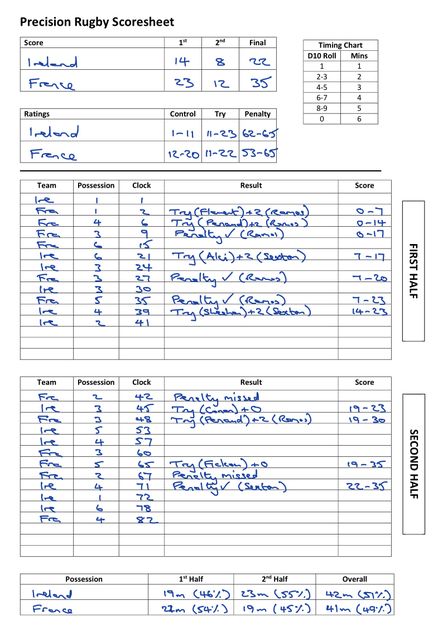 Precision Rugby Scoresheet
Score 1st 2nd Final
Ireland 14 8 22
France 23 12 35
Timing Chart
D10 Roll Mins
1 1
2-3 2
4-5 3
6-7 4
8-9 5
0 6
Ratings Control Try Penalty
Ireland 1-11 11-23 62-65
France 12-20 11-22 53-65
Team Possession Clock Result Score
Ire 1 1
Fra 1 2 Try (Flament) +2 (Ramos) 0-7
Fra 4 6 Try (Penaud) +2 (Ramos) 0-14
Fra 3 9 Penalty ✓ (Ramos) 0-17
Fra 6 15
Ire 6 21 Try (Aki) +2 (Sexton) 7-17
Ire 3 24
Fra 3 27 Penalty ✓ (Ramos) 7-20
Ire 3 30
Fra 5 35 Penalty ✓ (Ramos) 7-23
Ire 4 39 Try (Sheehan) +2 (Sexton) 14-23
Ire 2 41
FIRST HALF
Team Possession Clock Result Score
Fra 2 42 Penalty missed
Ire 3 45 Try (Conan) +0 19-23
Fra 3 48 Try (Penaud) +2 (Ramos) 19-30
Ire 5 53
Ire 4 57
Fra 3 60
Fra 5 65 Try (Fickou) +0 19-35
Fra 2 67 Penalty missed
Ire 4 71 Penalty ✓ (Sexton) 22-35
Ire 1 72
Ire 6 78
Fra 4 82
SECOND HALF
Possession 1st Half 2nd Half Overall
Ireland 19m (46%) 23m (55%) 42m (51%)
France 22m (54%) 19m (45%) 41m (49%)